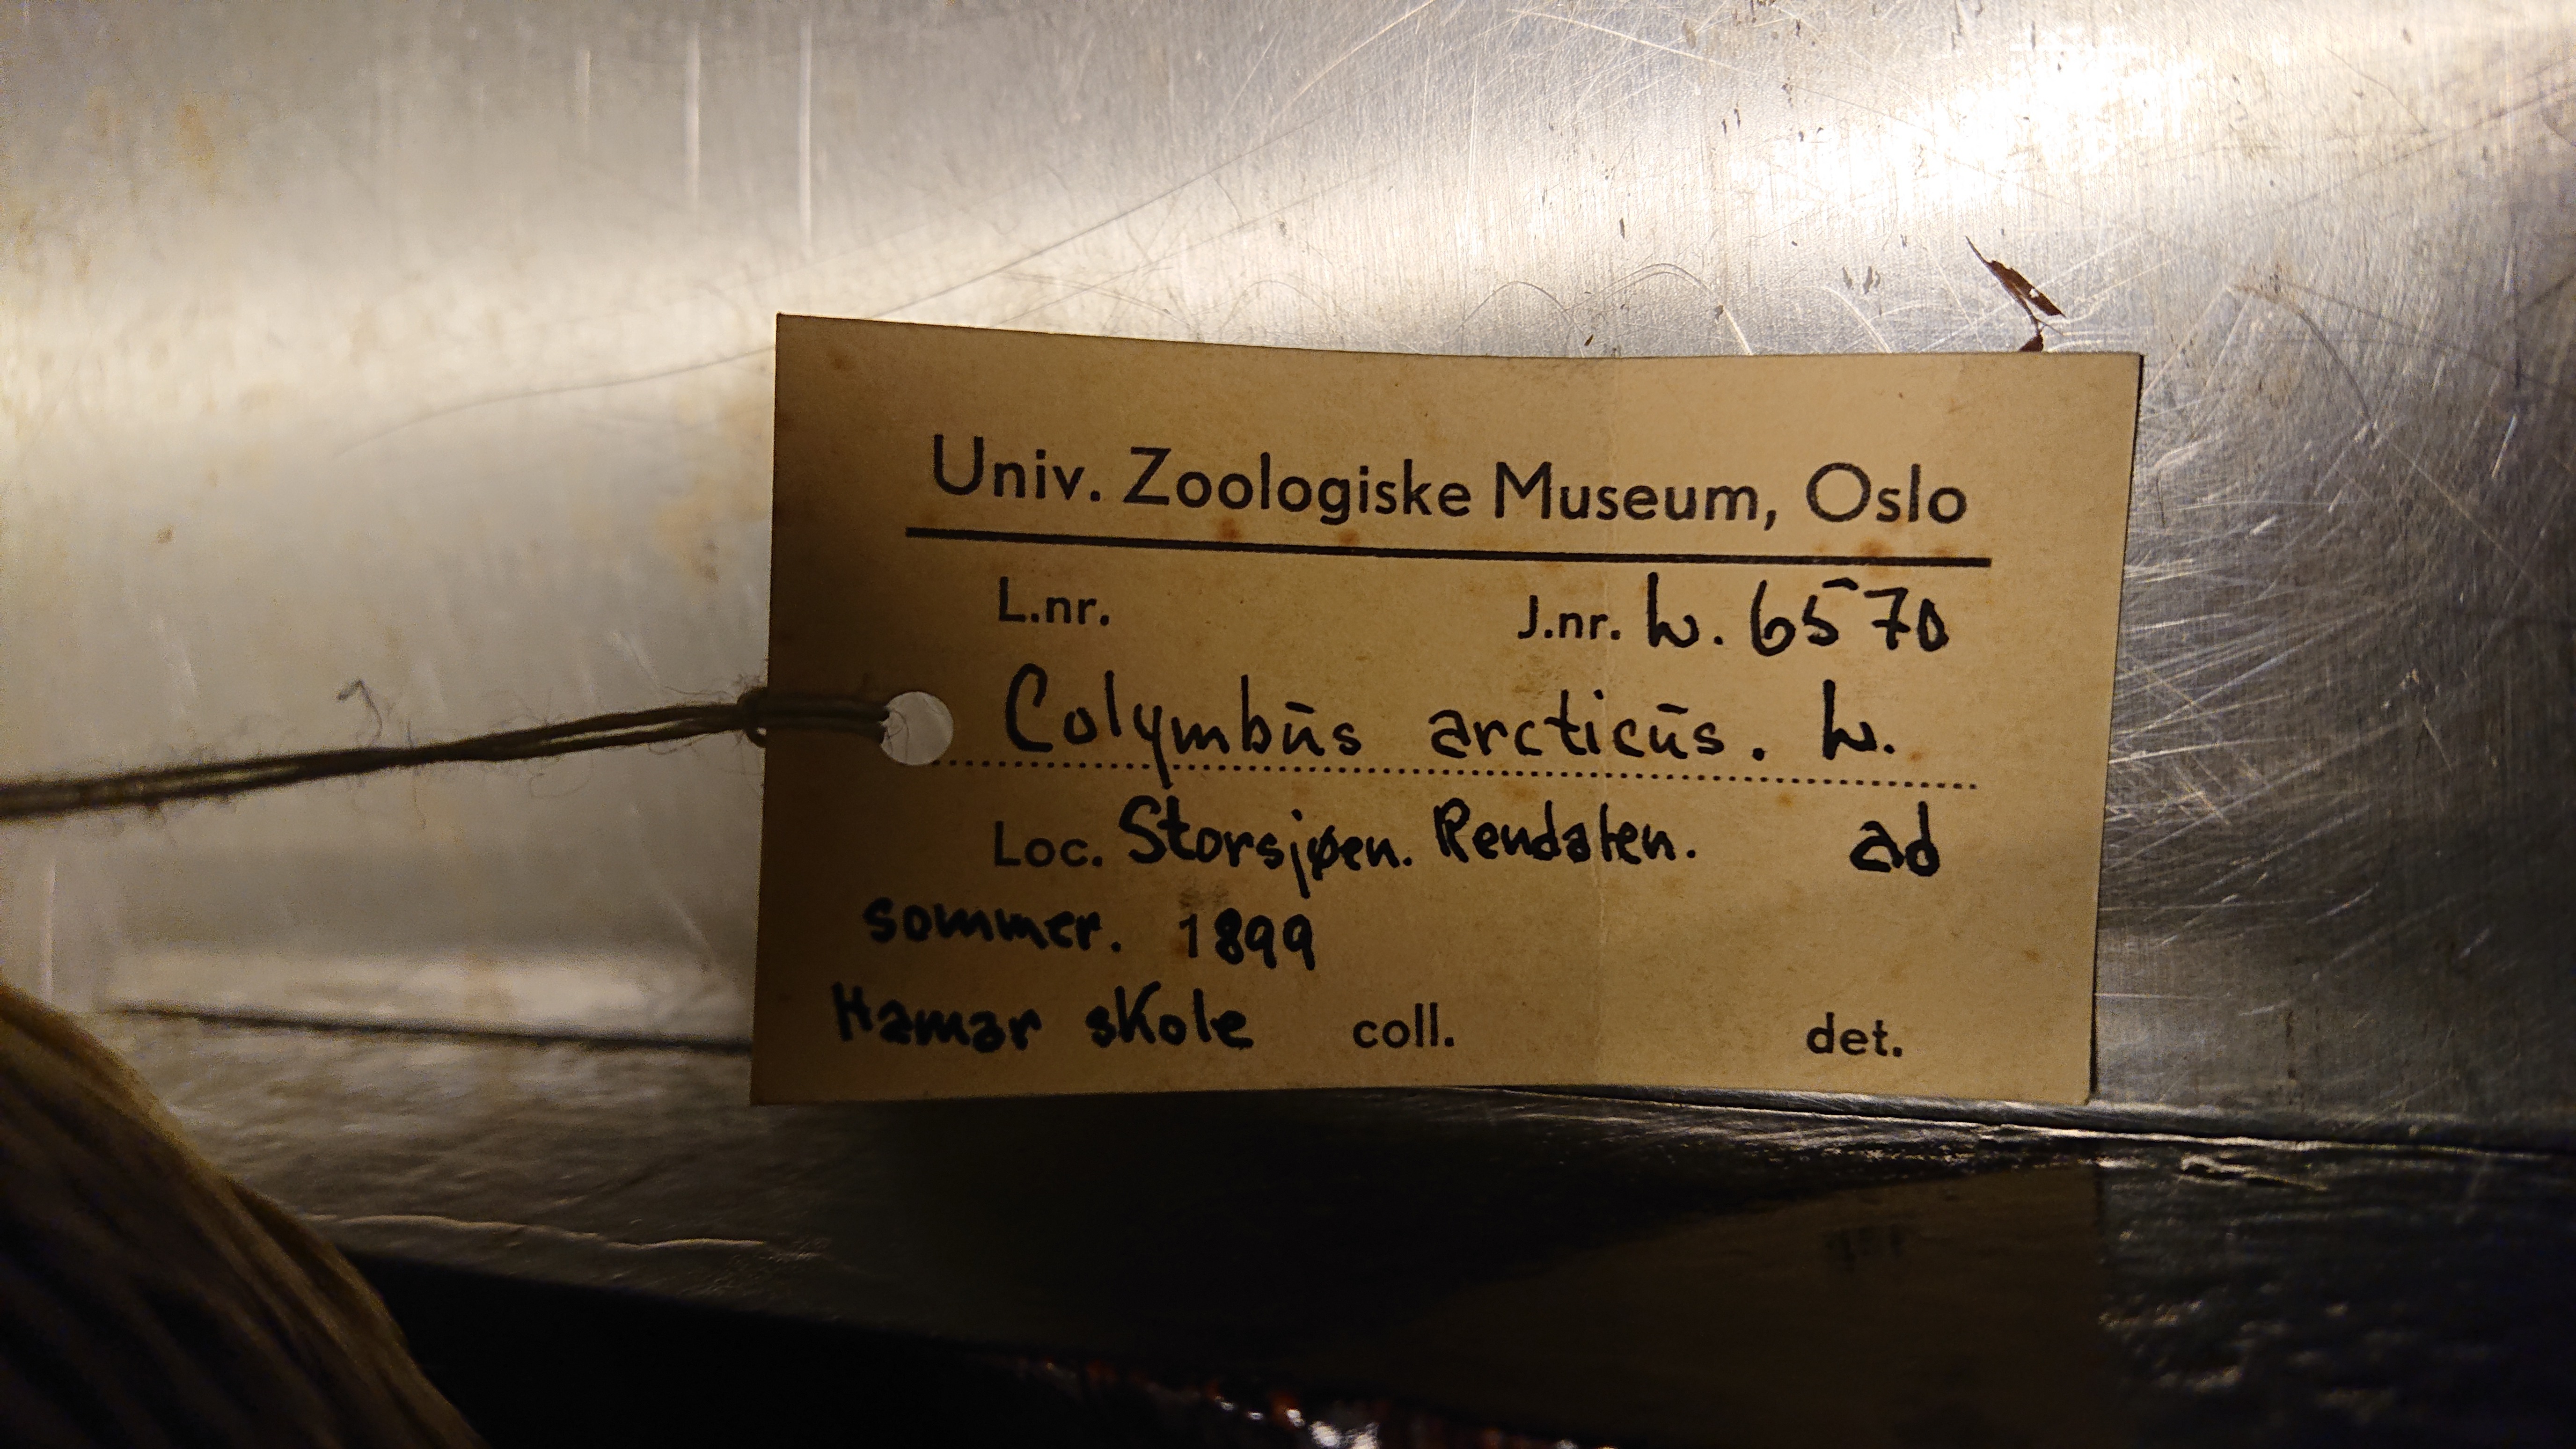 Univ. Zoologiske Museum, Oslo
L.nr. J.nr. L. 6570
Colymbūs arcticūs. L.
Loc. Storsjøen. Rendalen. ad
sommer. 1899
Hamar skole coll. det.